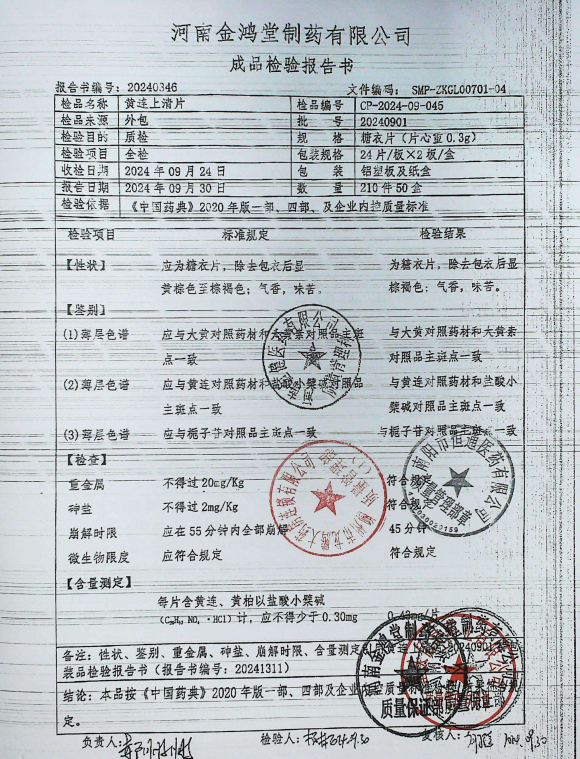 河南金鸿堂制药有限公司
成品检验报告书
报告书编号：20240346 文件编码：SMP-ZKGL00701-04
检品名称 黄连上清片 检品编号 CP-2024-09-045
检品来源 外包 批号 20240901
检验目的 质检 规格 糖衣片（片心重0.3g）
检验项目 全检 包装规格 24片/板×2板/盒
收检日期 2024年09月24日 包装 铝塑板及纸盒
报告日期 2024年09月30日 数量 210件50盒
检验依据 《中国药典》2020年版一部、四部、及企业内控质量标准
检验项目 标准规定 检验结果
【性状】 应为糖衣片，除去包衣后显 为糖衣片，除去包衣后显
黄棕色至棕褐色；气香，味苦。 棕褐色；气香，味苦。
【鉴别】
(1)薄层色谱 应与大黄对照药材和大黄素对照品主斑 与大黄对照药材和大黄素
点一致 对照品主斑点一致
(2)薄层色谱 应与黄连对照药材和盐酸小檗碱对照品 与黄连对照药材和盐酸小
主斑点一致 檗碱对照品主斑点一致
(3)薄层色谱 应与栀子苷对照品主斑点一致 与栀子苷对照品主斑点一致
【检查】
重金属 不得过20mg/Kg 符合规定
砷盐 不得过2mg/Kg 符合规定
崩解时限 应在55分钟内全部崩解 45分钟
微生物限度 应符合规定 符合规定
【含量测定】
每片含黄连、黄柏以盐酸小檗碱
(C₂₀H₁₇NO₄·HCl)计，应不得少于0.30mg 0.43mg/片
备注：性状、鉴别、重金属、砷盐、崩解时限、含量测定 20240901
装品检验报告书（报告书编号：20241311）
结论：本品按《中国药典》2020年版一部、四部及企业内控质量标准
定。
负责人： 检验人： 2024.9.30 复核人： 2024.9.30
南阳市恒通医药有限公司
质量管理部章
河南金鸿堂制药有限公司
质量保证部